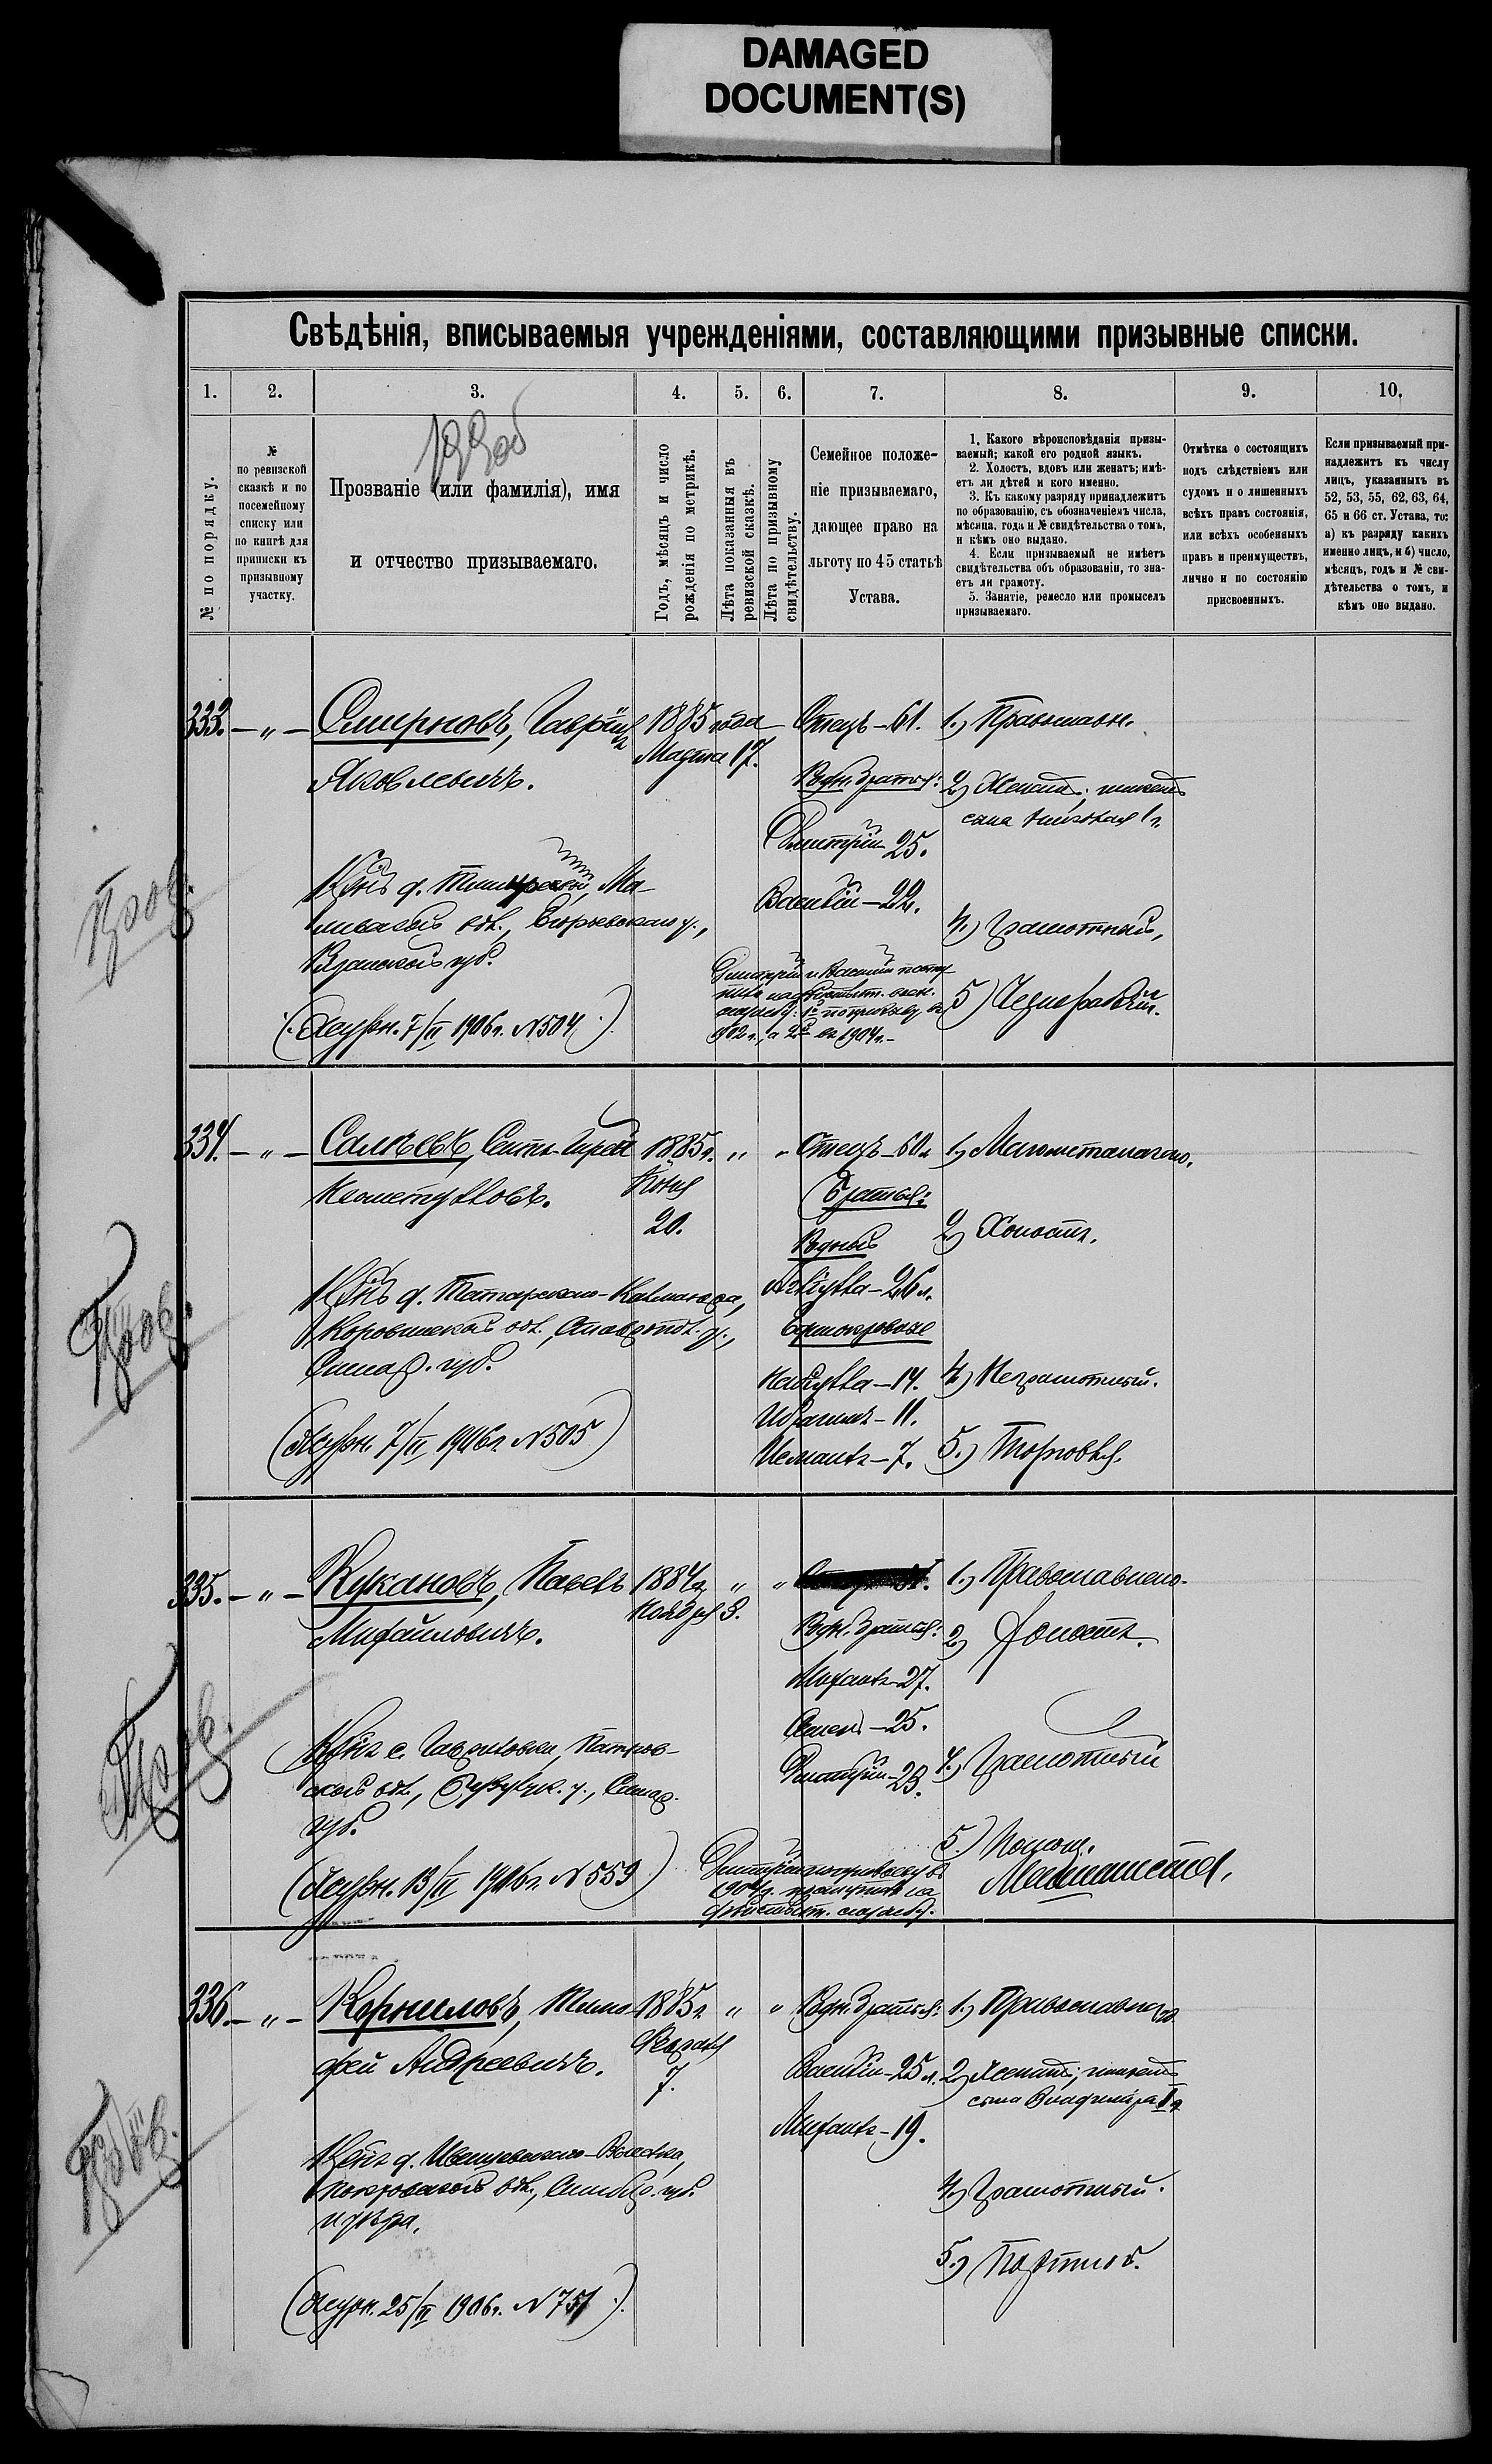 DAMAGED
DOCUMENT(S)
Свѣдѣнія, вписываемыя учрежденіями, составляющими призывные списки.
1. 2. 3. 4. 5. 6. 7. 8. 9. 10.
№ по порядку.
№
по ревизской
сказкѣ и по
посемейному
списку или
по книгѣ для
приписки къ
призывному
участку.
Прозваніе (или фамилія), имя
и отчество призываемаго.
Годъ, мѣсяцъ и число
рожденія по метрикѣ.
Лѣта показанныя въ
ревизской сказкѣ.
Лѣта по призывному
свидѣтельству.
Семейное положе-
ніе призываемаго,
дающее право на
льготу по 45 статьѣ
Устава.
1. Какого вѣроисповѣданія призы-
ваемый; какой его родной языкъ.
2. Холостъ, вдовъ или женатъ; имѣ-
етъ ли дѣтей и кого именно.
3. Къ какому разряду принадлежитъ
по образованію, съ обозначеніемъ числа,
мѣсяца, года и № свидѣтельства о томъ,
и кѣмъ оно выдано.
4. Если призываемый не имѣетъ
свидѣтельства объ образованіи, то зна-
етъ ли грамоту.
5. Занятіе, ремесло или промыселъ
призываемаго.
Отмѣтка о состоящихъ
подъ слѣдствіемъ или
судомъ и о лишенныхъ
всѣхъ правъ состоянія,
или всѣхъ особенныхъ
правъ и преимуществъ,
лично и по состоянію
присвоенныхъ.
Если призываемый при-
надлежитъ къ числу
лицъ, указанныхъ въ
52, 53, 55, 62, 63, 64,
65 и 66 ст. Устава, то:
а) къ разряду какихъ
именно лицъ, и б) число,
мѣсяцъ, годъ и № сви-
дѣтельства о томъ, и
кѣмъ оно выдано.
333. — „ — Смирновъ, Гавріилъ
Яковлевичъ.
1885 года
Марта 17.
Отецъ — 61.
Родн. братья:
Дмитрій 25.
Василій — 22.
1.) Православн.
2) Женатъ; имѣетъ
4.) Грамотный,
5) Чернорабочій.
Кр-нъ д.
вол., Егорьевскаго у.,
Рязанской губ.
(Журн. 7/II 1906 г. № 504)
1902 г., а 2й въ 1904 г. —
334. — „ — Салѣевъ,
1885 г. „ „
Іюня
20.
Отецъ — 60 л.
Братья:
Родной
— 26 л.
Единокровные
— 14.
Ибрагимъ — 11.
Исмаилъ — 7.
1.) Магометанскаго.
2) Холостъ.
4) Неграмотный.
5.) Торговля.
Кр-нъ д. Татарскаго Калмаюра,
вол., Ставропол. у.,
Самар. губ.
(Журн. 7/II 1906 г. № 505)
335. — „ — Кукановъ, Павелъ
Михайловичъ.
1884 г. „ „
Ноября 3.
Родн. братья:
Михаилъ — 27.
Семенъ — 25.
Дмитрій — 23.
1.) Православнаго.
2) Холостъ.
4.) Грамотный
5.) Помощ.
Машиниста.
Кр-нъ с. Гавриловки,
ской вол., Бузулук. у., Самар.
губ.
(Журн. 13/II 1906 г. № 559)
336. — „ — Корниловъ, Тимо
фей Андреевичъ.
1885 г. „ „
Февраля
7.
Родн. братья:
Василій — 25 л.
Михаилъ — 19.
1.) Православнаго
2) Женатъ; имѣетъ
сына Владиміра
4.) Грамотный.
5.) Портной.
Кр-нъ д.
Покровской вол., Симбир. губ.
и уѣзда.
(Журн. 25/II 1906 г. № 751)